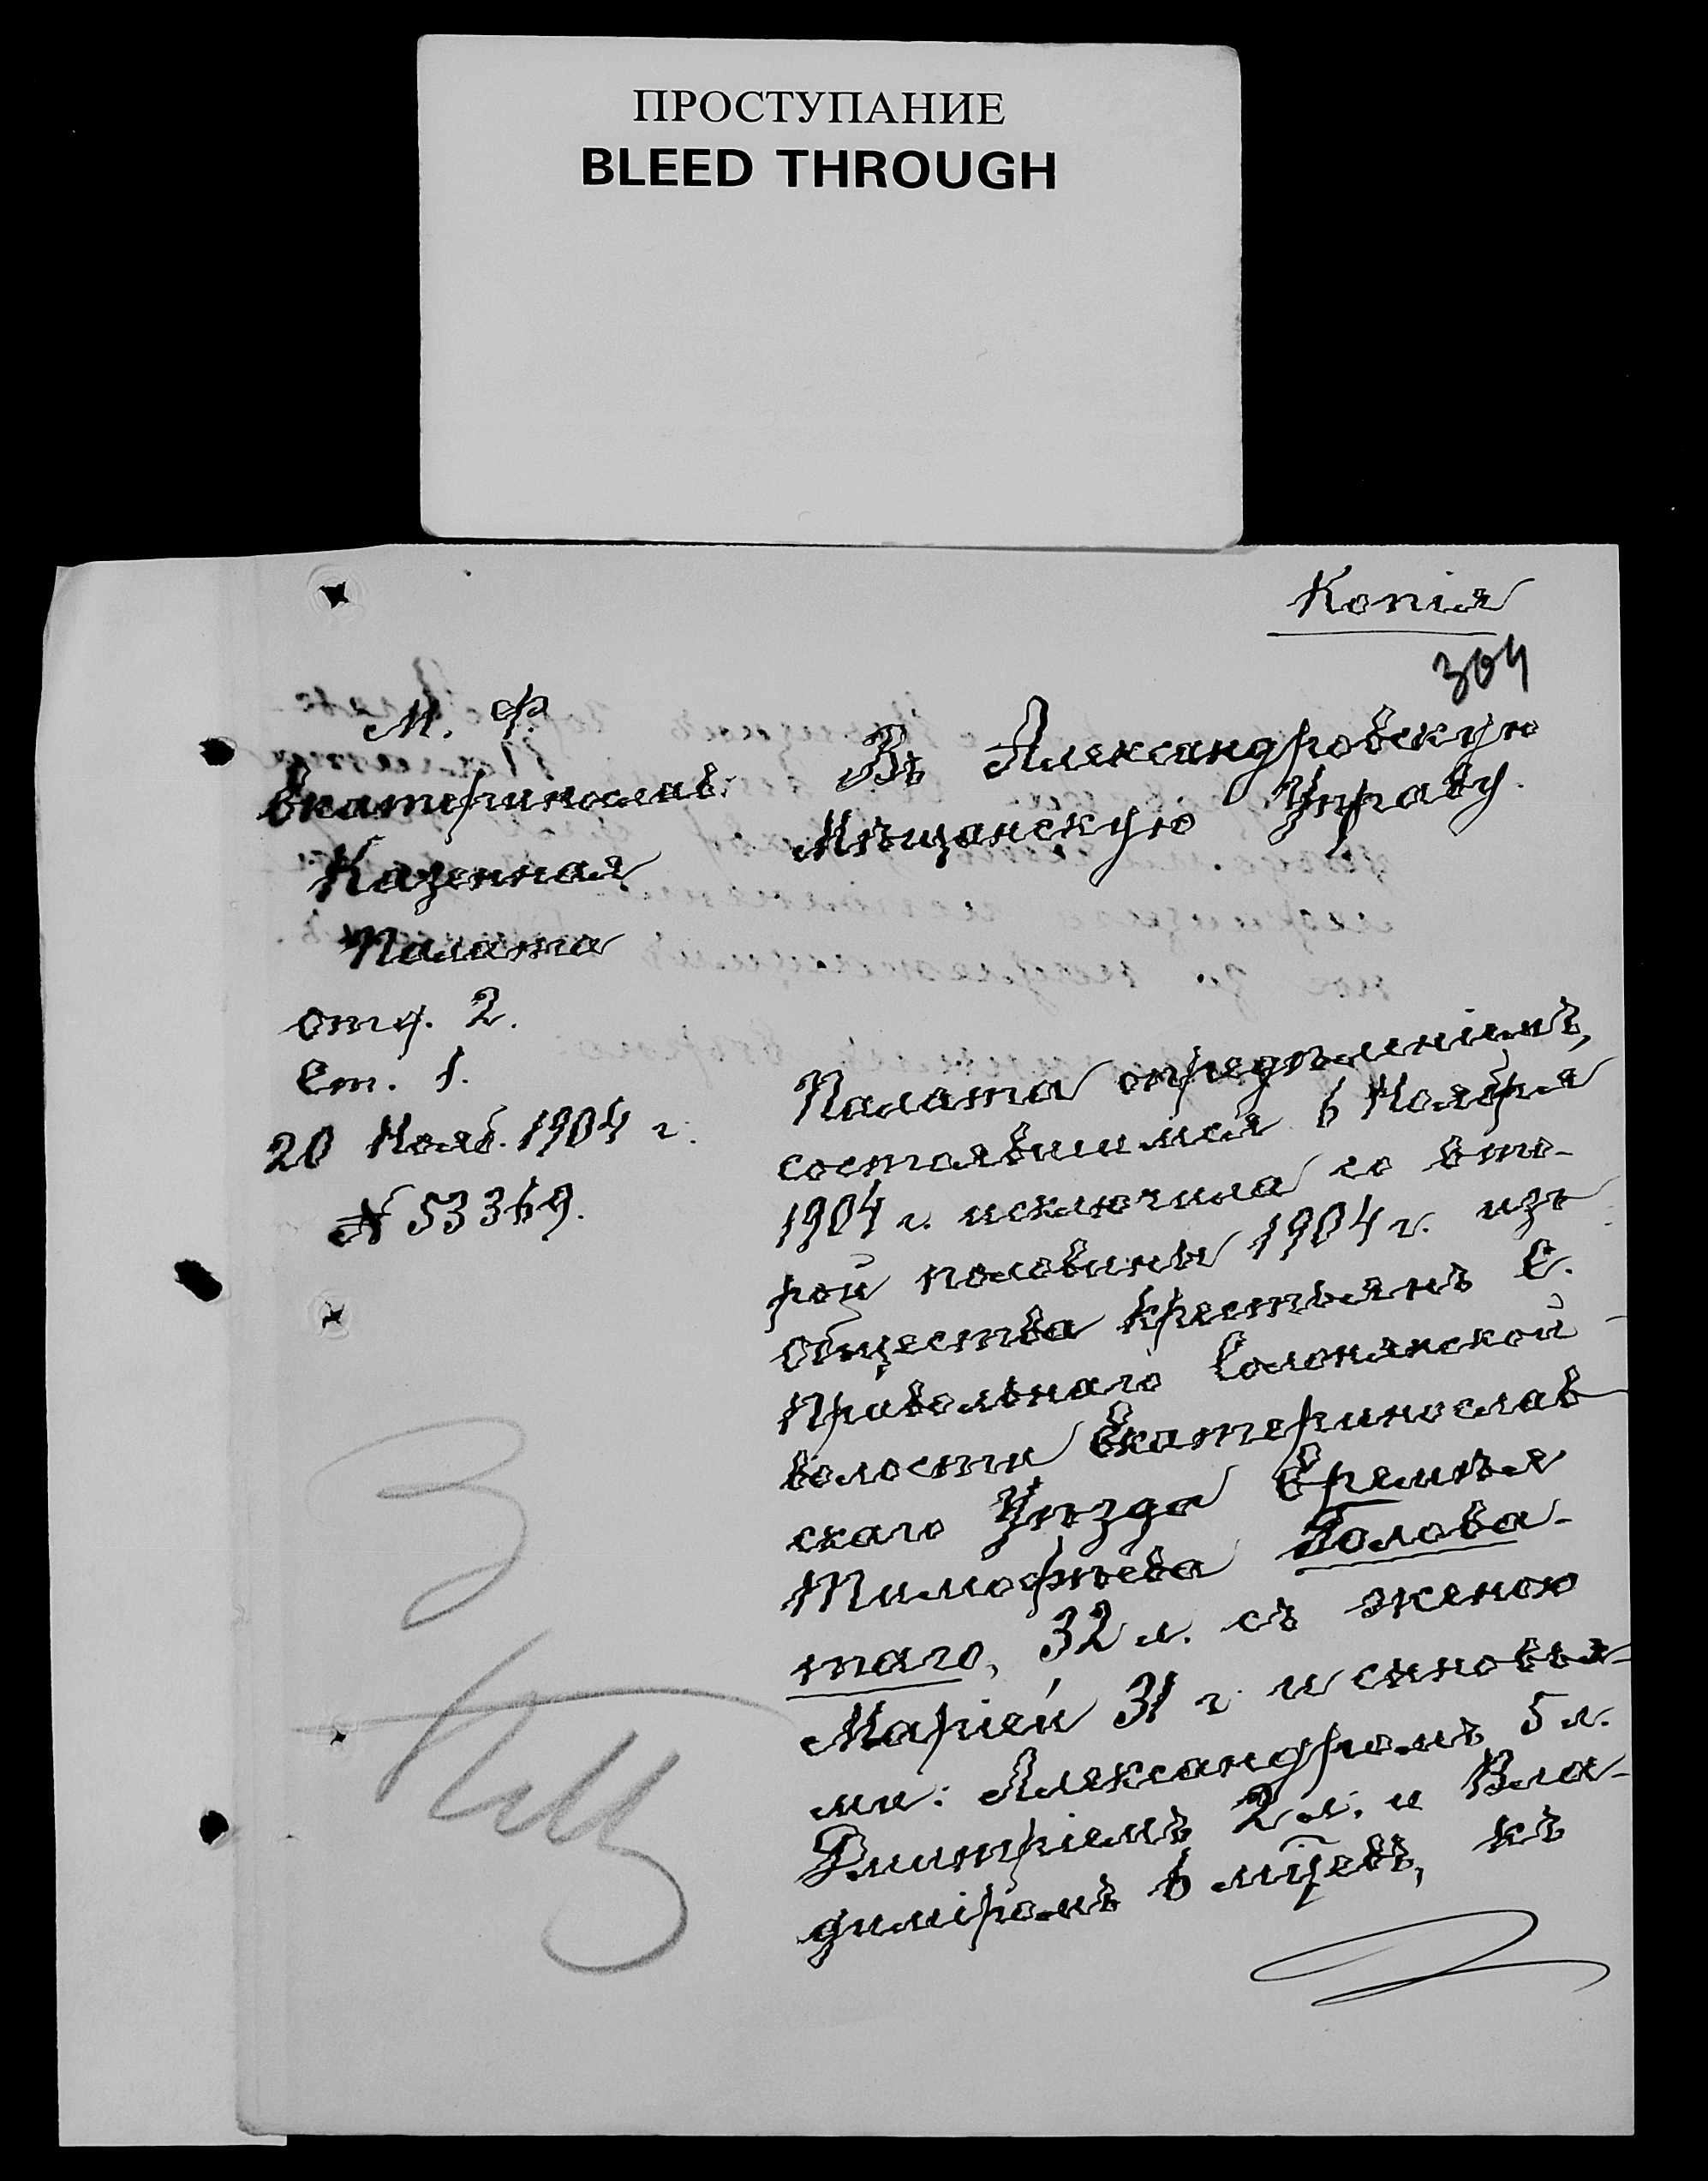 ПРОСТУПАНИЕ
BLEED THROUGH
Копія
304
М. Ф.
Екатеринослав.
Казенная
Палата
отд. 2.
Ст. 1.
20 Нояб. 1904 г.
№ 53369.
Въ Александровскую
Мѣщанскую Управу.
Палата опредѣленіемъ,
состоявшимся 6 Ноября
1904 г. исключила со вто-
рой половины 1904 г. изъ
общества крестьянъ С.
Привольнаго Солонянской
волости Екатеринослав
скаго Уѣзда Еремѣя
Тимофѣева Голова-
таго, 32 л. съ женою
Маріей 31 г. и сыновья-
ми: Александромъ 5 л.
Дмитріемъ 2 л. и Вла-
диміромъ 6 мѣцевъ, къ